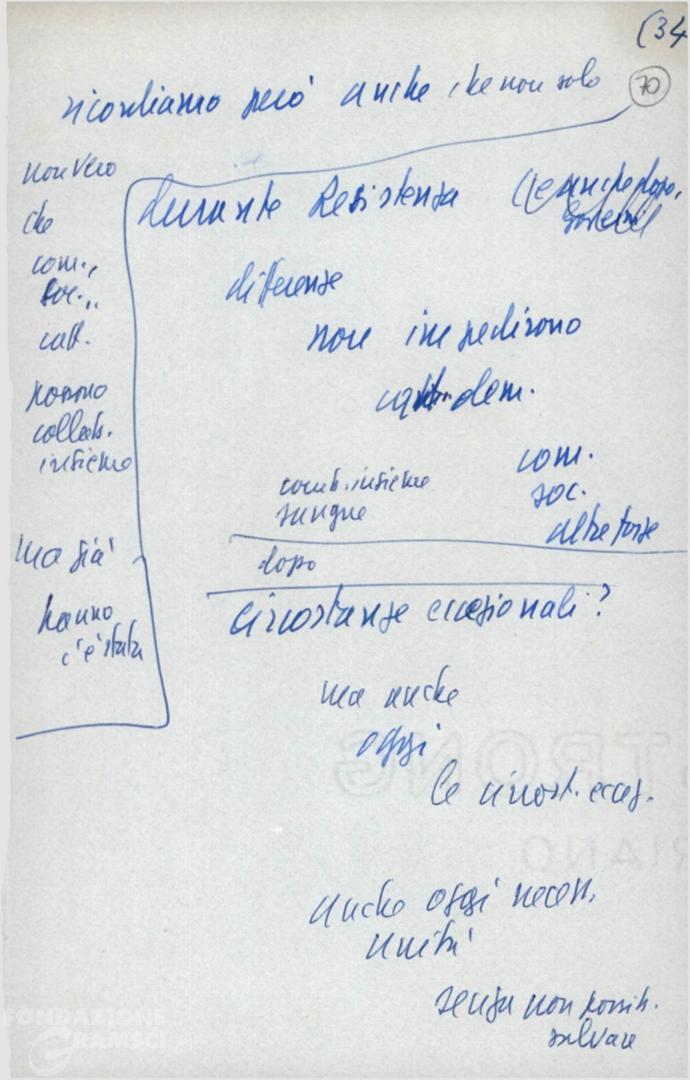 (34
70
ricordiamo però anche che non solo
non vero
che
com.,
soc.,
catt.
possono
collab.
insieme
ma già
hanno
c'è stata
durante Resistenza (e anche dopo,
differenze
non impedirono
dem.
comb. insieme
sangue
com.
soc.
altre forze
dopo
circostanze eccezionali?
ma anche
oggi
le circost. eccez.
anche oggi necess.
unità
senza non possib.
salvare
FONDAZIONE
GRAMSCI